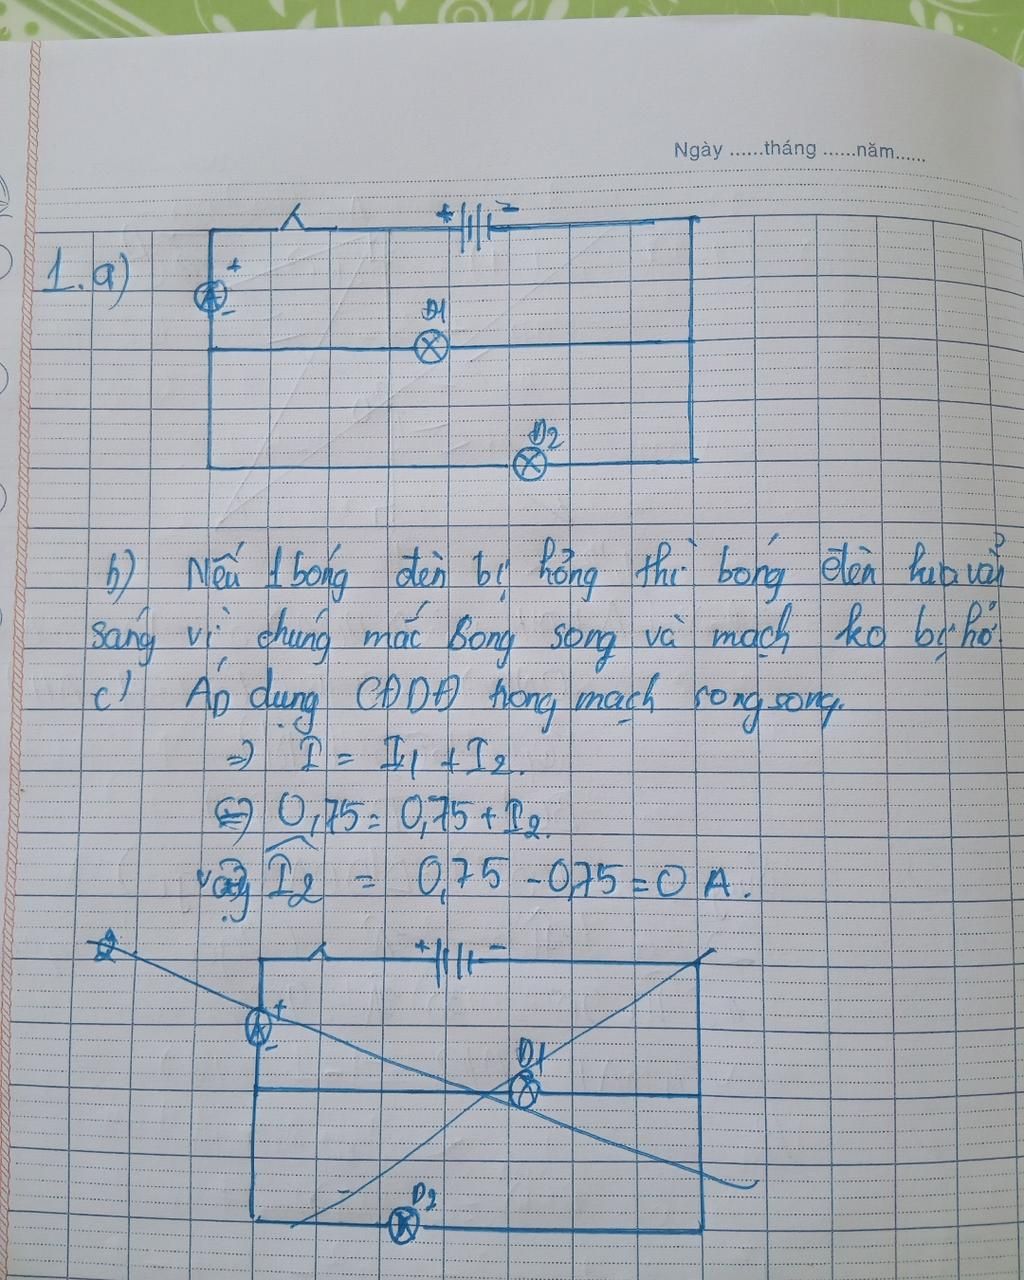 Ngày ......tháng ......năm......
+ -
1. a)
+
A
-
Đ1
Đ2
b) Nếu 1 bóng đèn bị hỏng thì bóng đèn kia vẫn
sáng vì chúng mắc song song và mạch ko bị hở
c) Áp dụng CĐDĐ trong mạch song song.
=> I = I1 + I2.
<=> 0,75 = 0,75 + I2.
Vậy I2 = 0,75 - 0,75 = 0 A.
2 + -
+
A
-
Đ1
Đ2